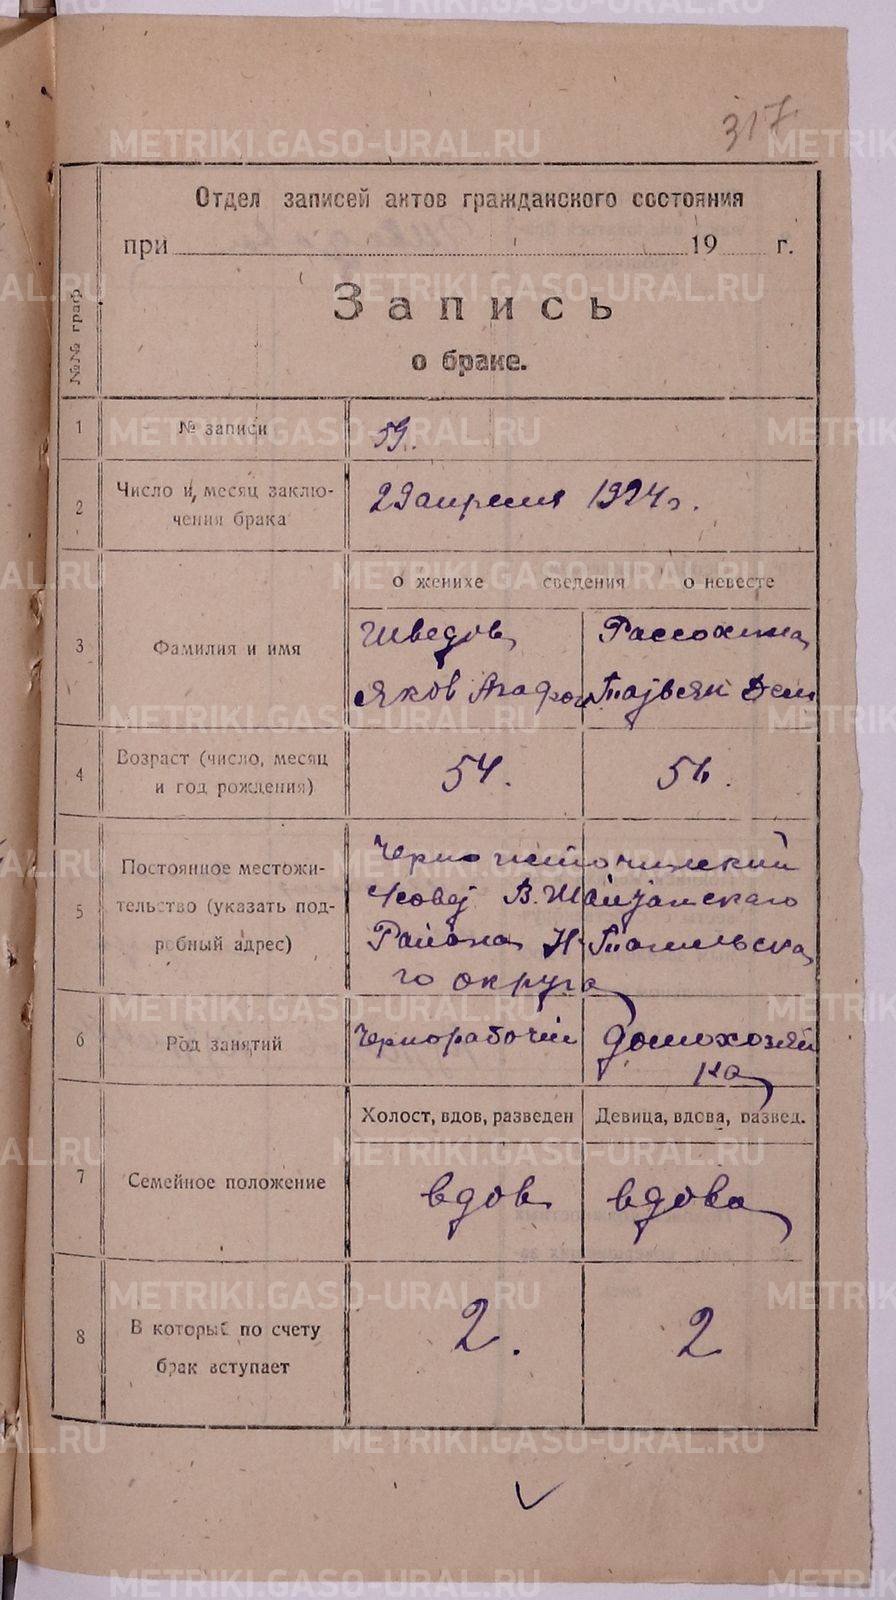 317
Отдел записей актов гражданского состояния
при 19 г.
Запись
о браке.
№№ граф
1 № записи 59.
2 Число и месяц заклю-
чения брака 29 апреля 1924 г.
о женихе сведения о невесте
3 Фамилия и имя
Шведов Рассохина
Яков Агафон
4 Возраст (число, месяц
и год рождения) 54. 56.
5 Постоянное местожи-
тельство (указать под-
робный адрес)
Черноисточинский
В. Шайтанскаго
Района Н-Тагильска
го округа
6 Род занятий Чернорабочий Домохозяй
ка
Холост, вдов, разведен Девица, вдова, развед.
7 Семейное положение вдов вдова
8 В который по счету
брак вступает 2. 2
METRIKI.GASO-URAL.RU